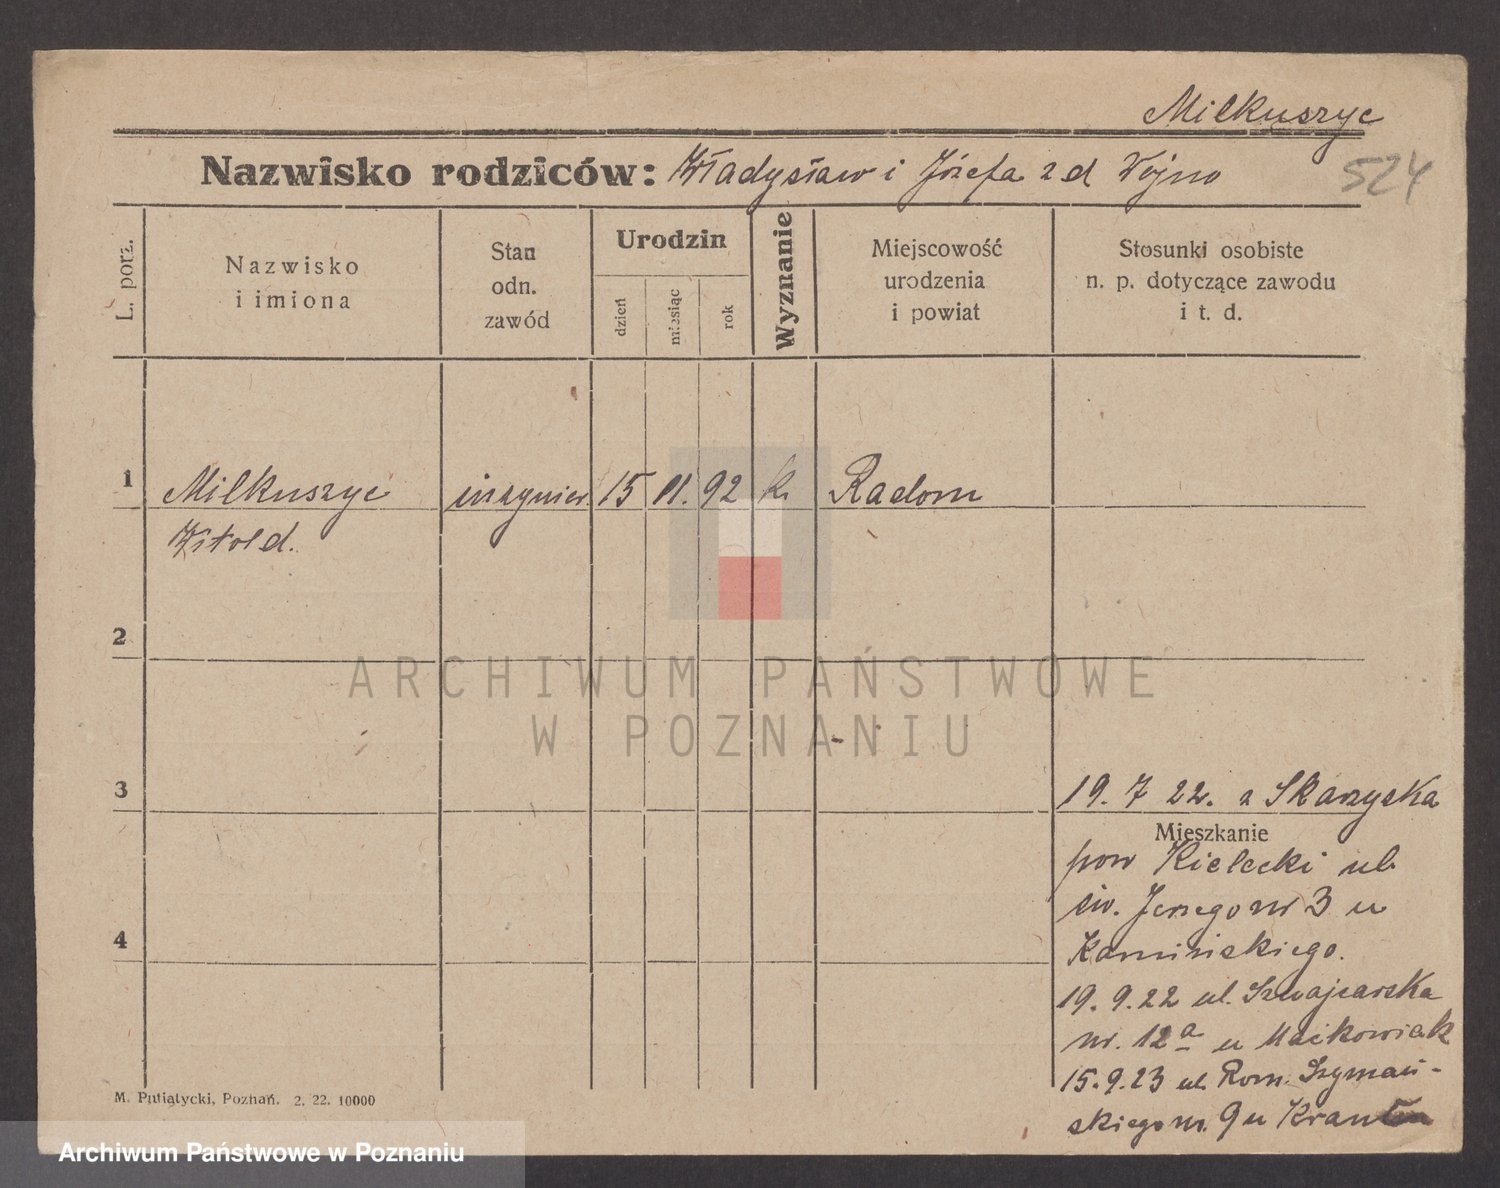 Milkuszyc
Nazwisko rodziców: Władysław i Józefa z d Wojno
524
L. porz.
Nazwisko
i imiona
Stan
odn.
zawód
Urodzin
dzień
miesiąc
rok
Wyznanie
Miejscowość
urodzenia
i powiat
Stosunki osobiste
n. p. dotyczące zawodu
i t. d.
1
Milkuszyc inżynier 15 11. 92 k. Radom
Witold.
2
ARCHIWUM PAŃSTWOWE
W POZNANIU
3
19. 7 22. z Skarzyska
Mieszkanie
pow Kielecki ul
św. Jerzego nr 3 u
4
Kamińskiego.
19. 9. 22 ul. Szwajcarska
nr. 12a u Maćkowiak
15. 9. 23 ul. Rom. Szymań-
skiego nr. 9 u
M. Putiatycki, Poznań. 2. 22. 10000
Archiwum Państwowe w Poznaniu